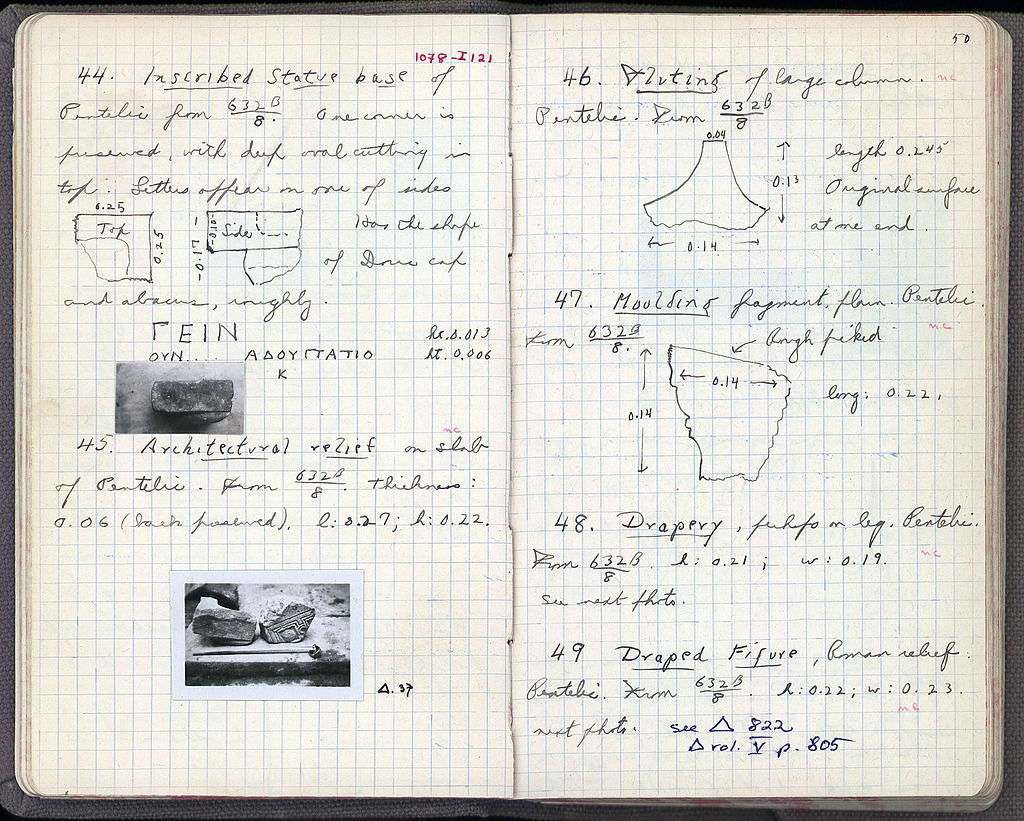 1078-I 121
44. Inscribed Statue base of
Pentelic from 632B/8. One corner is
preserved, with deep oval cutting in
top. Letters appear on one of sides
0.25
Top
0.25
-0.17-
-0.10-
Side
Has the shape
of Doric cap
and abacus, roughly.
ΓΕΙΝ
ht. 0.013
ΟΥΝ.... ΑΔΟΥ ΤΑΤΙΟ
ht. 0.006
Κ
nc
45. Architectural relief on slab
of Pentelic. From 632B/8. Thickness:
0.06 (back preserved), l: 0.27; h: 0.22.
Δ.37
50
46. Fluting of large column. nc
Pentelic. From 632B/8
0.04
0.13
0.14
length 0.245
Original surface
at one end.
47. Moulding fragment, plain. Pentelic.
nc
From 632B/8.
Rough piked
0.14
0.14
long: 0.22,
48. Drapery, perhaps on leg. Pentelic.
nc
From 632B/8. h: 0.21; w: 0.19.
See next photo.
49 Draped Figure, Roman relief.
Pentelic. From 632B/8. h: 0.22; w: 0.23.
nc
next photo. see Δ 822
Δ vol. V p. 805